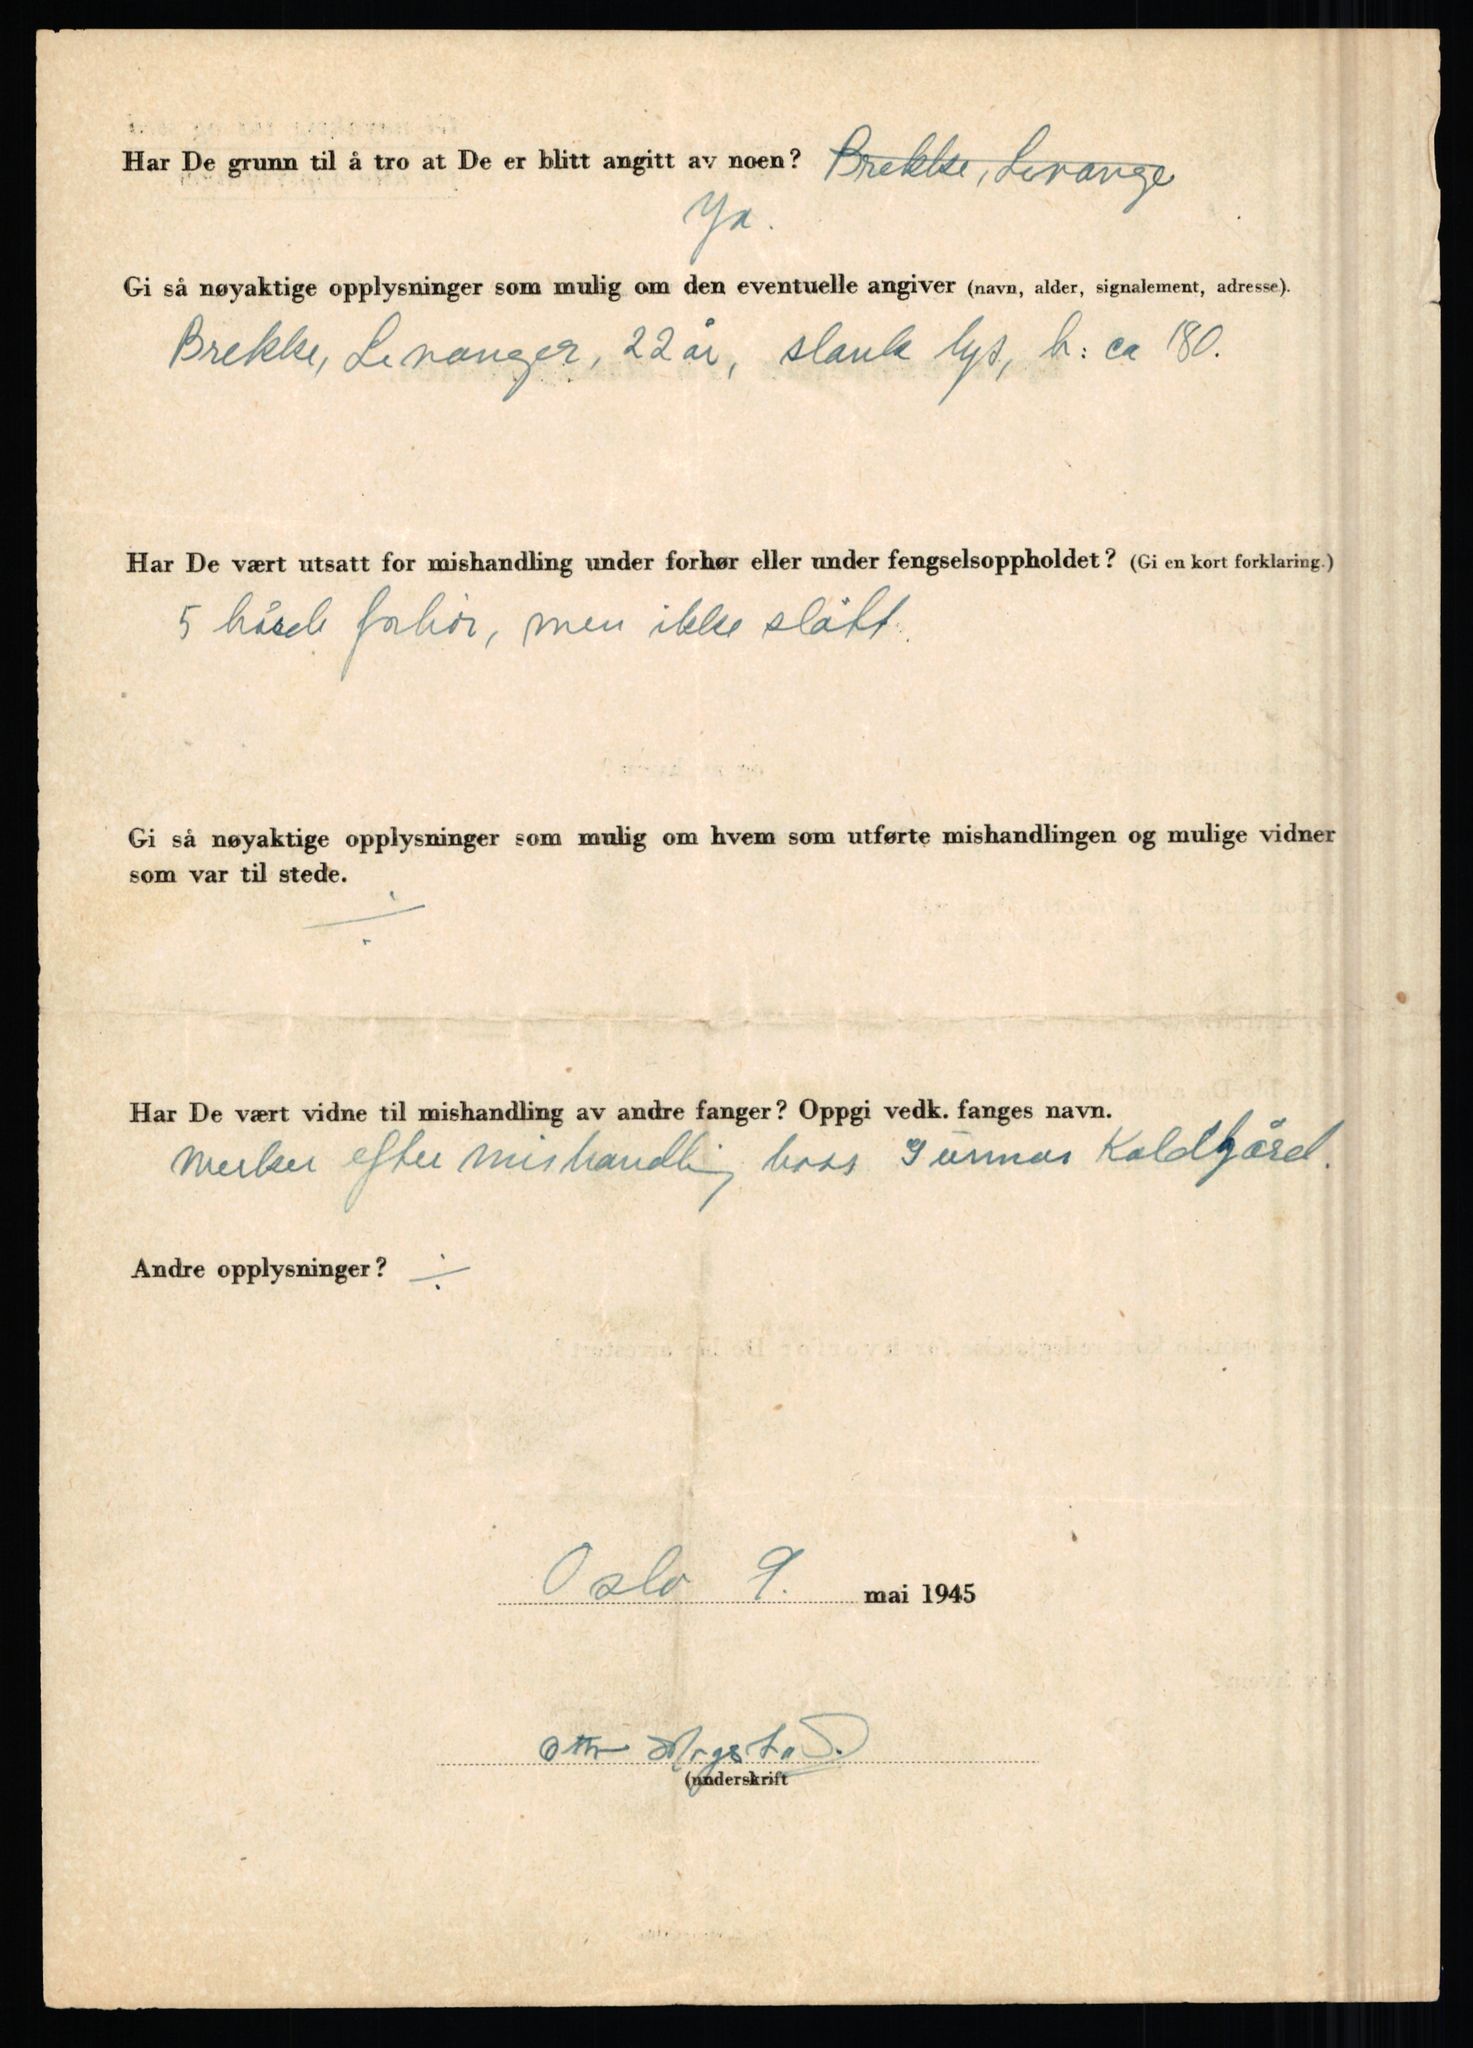 Har De grunn til å tro at De er blitt angitt av noen? Brekke, Levange
Ja.
Gi så nøyaktige opplysninger som mulig om den eventuelle angiver (navn, alder, signalement, adresse).
Brekke, Levanger, 22 år, slank lys, h: ca 180.
Har De vært utsatt for mishandling under forhør eller under fengselsoppholdet? (Gi en kort forklaring.)
5 hårde forhör, men ikke slått.
Gi så nøyaktige opplysninger som mulig om hvem som utførte mishandlingen og mulige vidner
som var til stede.
÷
Har De vært vidne til mishandling av andre fanger? Oppgi vedk. fanges navn.
Merker efter mishandling hoss Gunnar Koldgård.
Andre opplysninger? ÷
Oslo 9. mai 1945
Otto
(underskrift